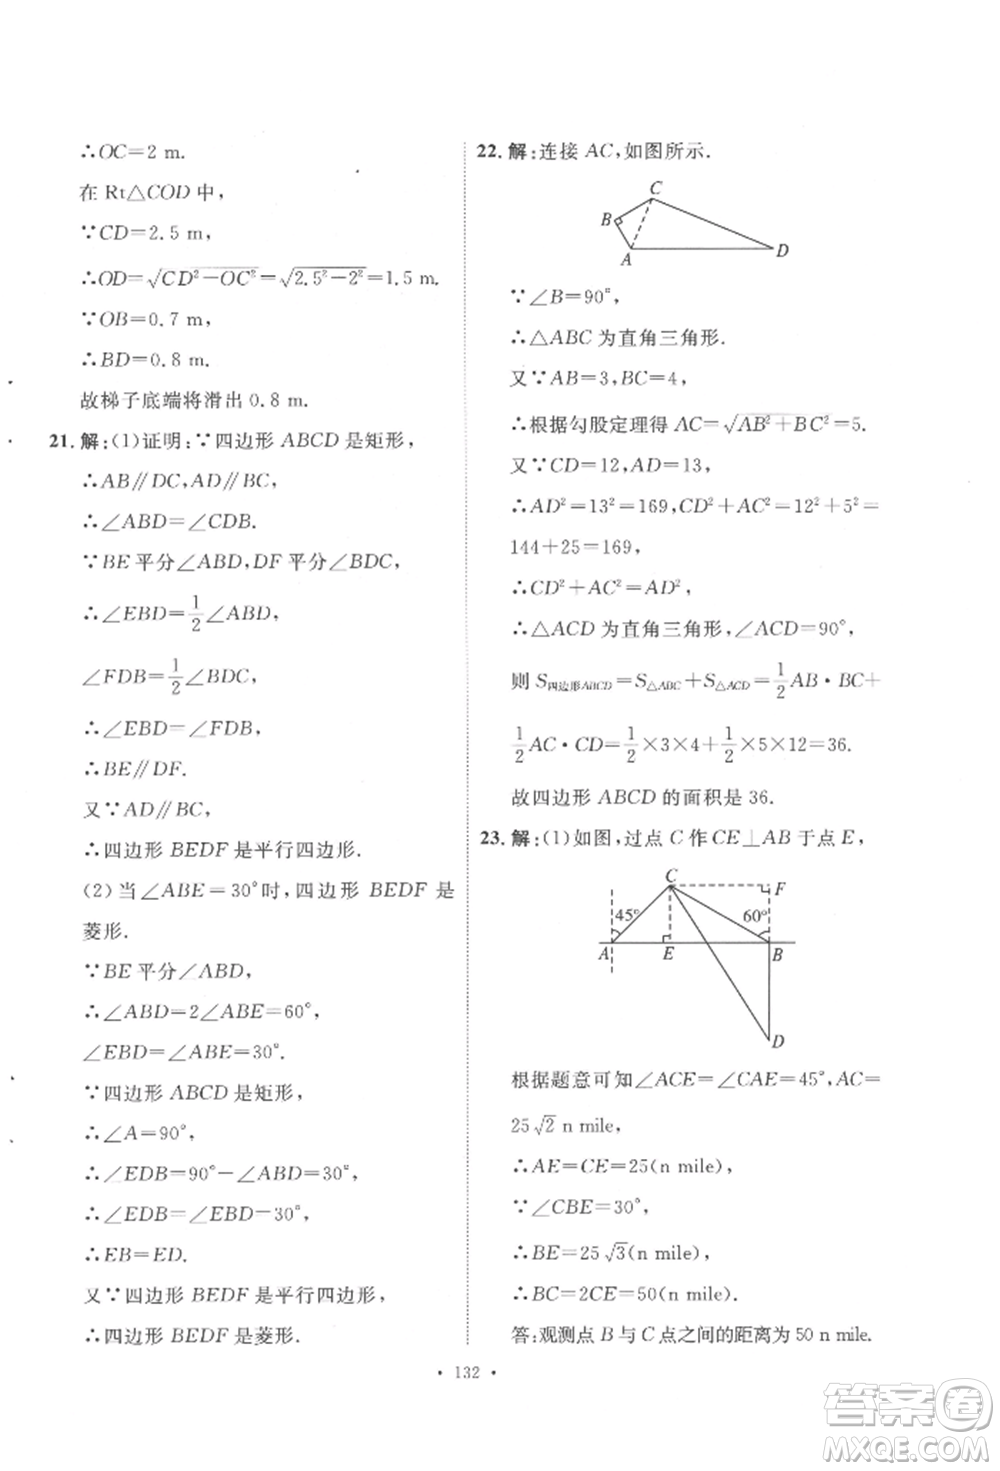 ∴OC=2 m.
在 Rt△COD 中,
∵CD=2.5 m,
∴OD=√(CD²-OC²)=√(2.5²-2²)=1.5 m.
∵OB=0.7 m,
∴BD=0.8 m.
故梯子底端将滑出 0.8 m.
21. 解:(1)证明:∵四边形 ABCD 是矩形,
∴AB∥DC,AD∥BC,
∴∠ABD=∠CDB.
∵BE 平分∠ABD,DF 平分∠BDC,
∴∠EBD=1/2∠ABD,
∠FDB=1/2∠BDC,
∴∠EBD=∠FDB,
∴BE∥DF.
又∵AD∥BC,
∴四边形 BEDF 是平行四边形.
(2)当∠ABE=30°时,四边形 BEDF 是
菱形.
∵BE 平分∠ABD,
∴∠ABD=2∠ABE=60°,
∠EBD=∠ABE=30°.
∵四边形 ABCD 是矩形,
∴∠A=90°,
∴∠EDB=90°-∠ABD=30°,
∴∠EDB=∠EBD=30°,
∴EB=ED.
又∵四边形 BEDF 是平行四边形,
∴四边形 BEDF 是菱形.
22. 解:连接 AC,如图所示.
C
B
A
D
∵∠B=90°,
∴△ABC 为直角三角形.
又∵AB=3,BC=4,
∴根据勾股定理得 AC=√(AB²+BC²)=5.
又∵CD=12,AD=13,
∴AD²=13²=169,CD²+AC²=12²+5²=
144+25=169,
∴CD²+AC²=AD²,
∴△ACD 为直角三角形,∠ACD=90°,
则 S四边形ABCD=S△ABC+S△ACD=1/2AB·BC+
1/2AC·CD=1/2×3×4+1/2×5×12=36.
故四边形 ABCD 的面积是 36.
23. 解:(1)如图,过点 C 作 CE⊥AB 于点 E,
C
F
45°
60°
A
E
B
D
根据题意可知∠ACE=∠CAE=45°,AC=
25√2 n mile,
∴AE=CE=25(n mile),
∵∠CBE=30°,
∴BE=25√3(n mile),
∴BC=2CE=50(n mile).
答:观测点 B 与 C 点之间的距离为 50 n mile.
· 132 ·
答案圈
MXQE.COM